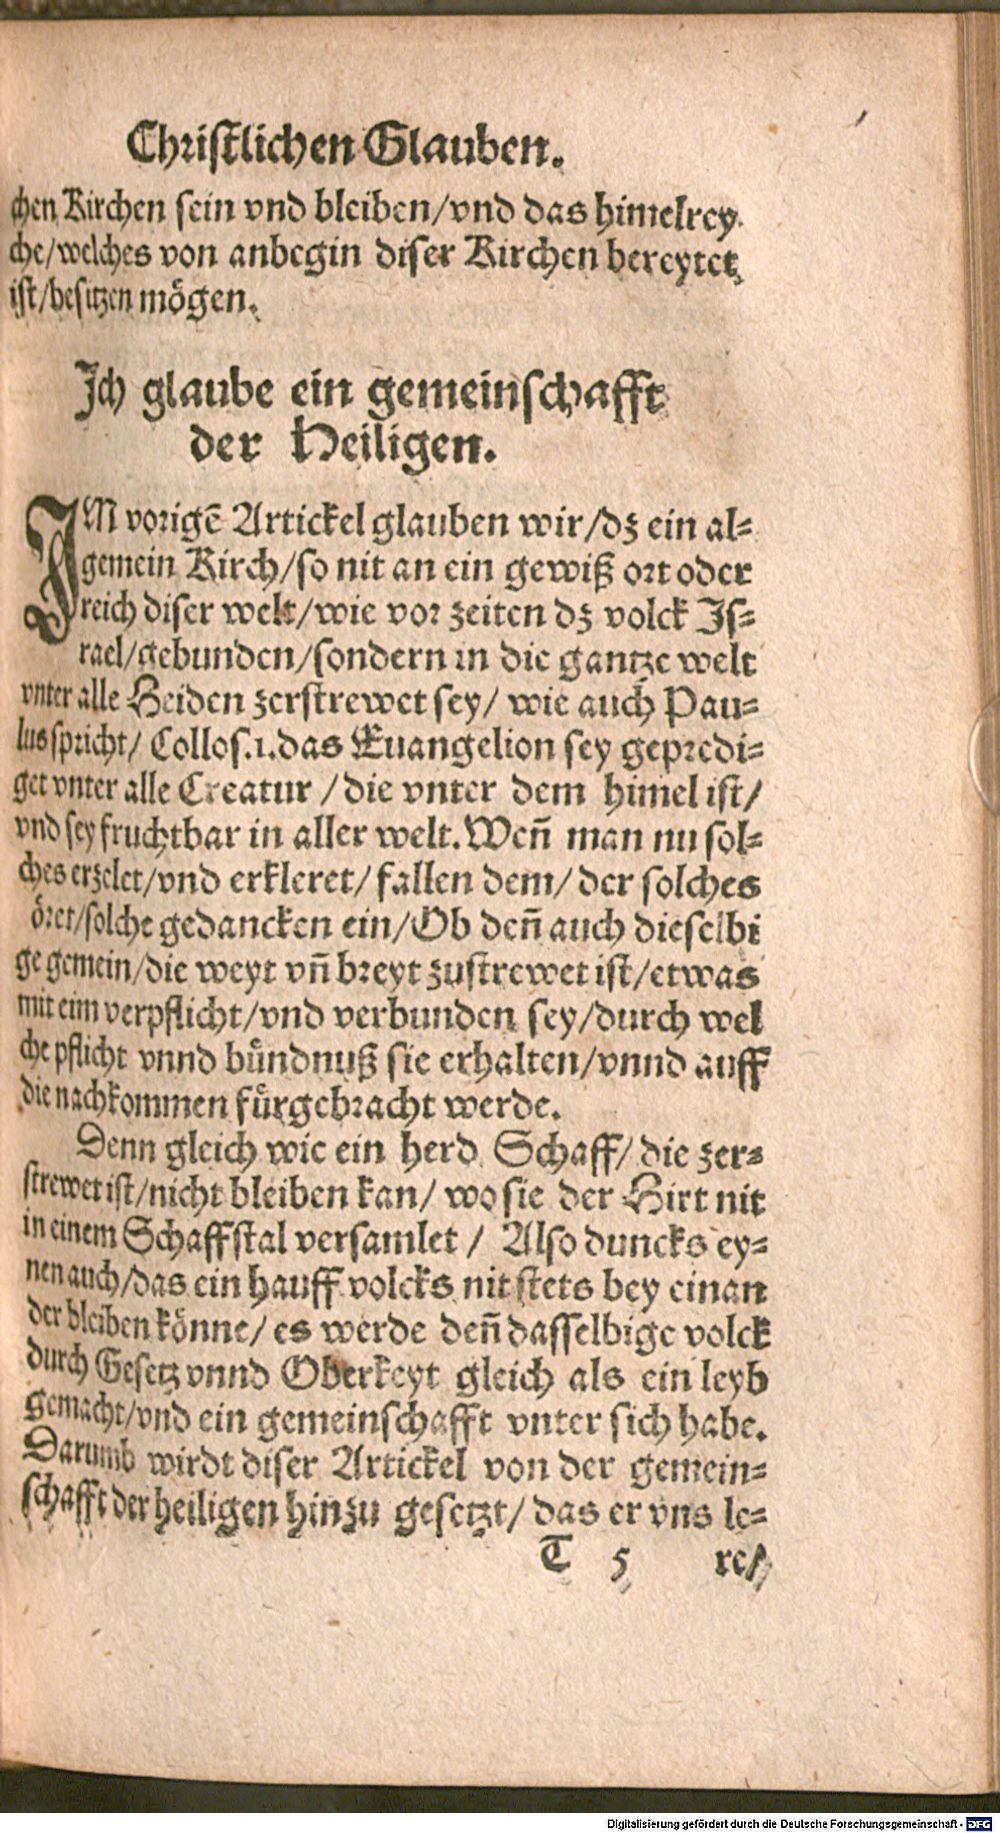 Christlichen Glauben.
chen Kirchen sein vnd bleiben/vnd das himelrey-
che/welches von anbegin diser Kirchen bereytet
ist/besitzen mögen.
Ich glaube ein gemeinschafft
der Heiligen.
IM vorigē Artickel glauben wir/dz ein al-
gemein Kirch/so nit an ein gewiß ort oder
reich diser welt/wie vor zeiten dz volck Is-
rael/gebunden/sondern in die gantze welt
vnter alle Heiden zerstrewet sey/ wie auch Pau-
lus spricht/ Collos.1.das Euangelion sey gepredi-
get vnter alle Creatur /die vnter dem himel ist/
vnd sey fruchtbar in aller welt. Weñ man nu sol-
ches erzelet/vnd erkleret/ fallen dem/ der solches
öret/solche gedancken ein/Ob deñ auch dieselbi
ge gemein/die weyt vñ breyt zustrewet ist/etwas
mit eim verpflicht/vnd verbunden sey/durch wel
che pflicht vnnd bündnuß sie erhalten/vnnd auff
die nachkommen fürgebracht werde.
Denn gleich wie ein herd Schaff/ die zer-
strewet ist/nicht bleiben kan/ wo sie der Hirt nit
in einem Schaffstal versamlet / Also duncks ey-
nen auch/das ein hauff volcks nit stets bey einan
der bleiben könne/ es werde deñ dasselbige volck
durch Gesetz vnnd Oberkeyt gleich als ein leyb
gemacht/vnd ein gemeinschafft vnter sich habe.
Darumb wirdt diser Artickel von der gemein-
schafft der heiligen hinzu gesetzt/ das er vns le-
T 5 re/
Digitalisierung gefördert durch die Deutsche Forschungsgemeinschaft - DFG